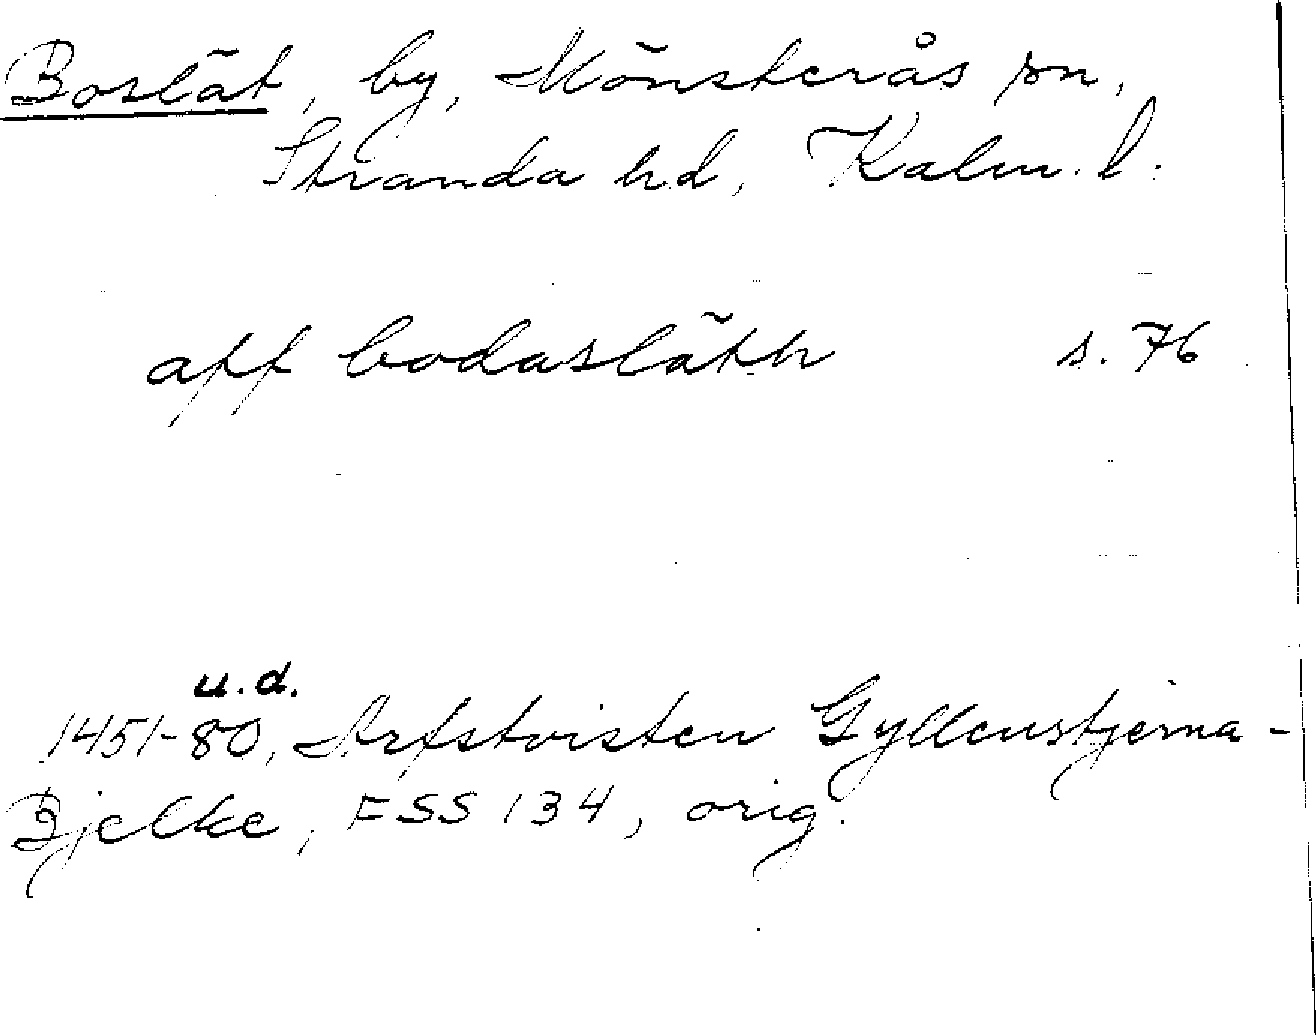 Boslät, by, Mönsterås sn,
Stranda hd, Kalm. l.
aff bodasläth s. 76
u.d.
1451-80, Arfstvisten Gyllenstjerna-
Bjelke, FSS 134, orig.